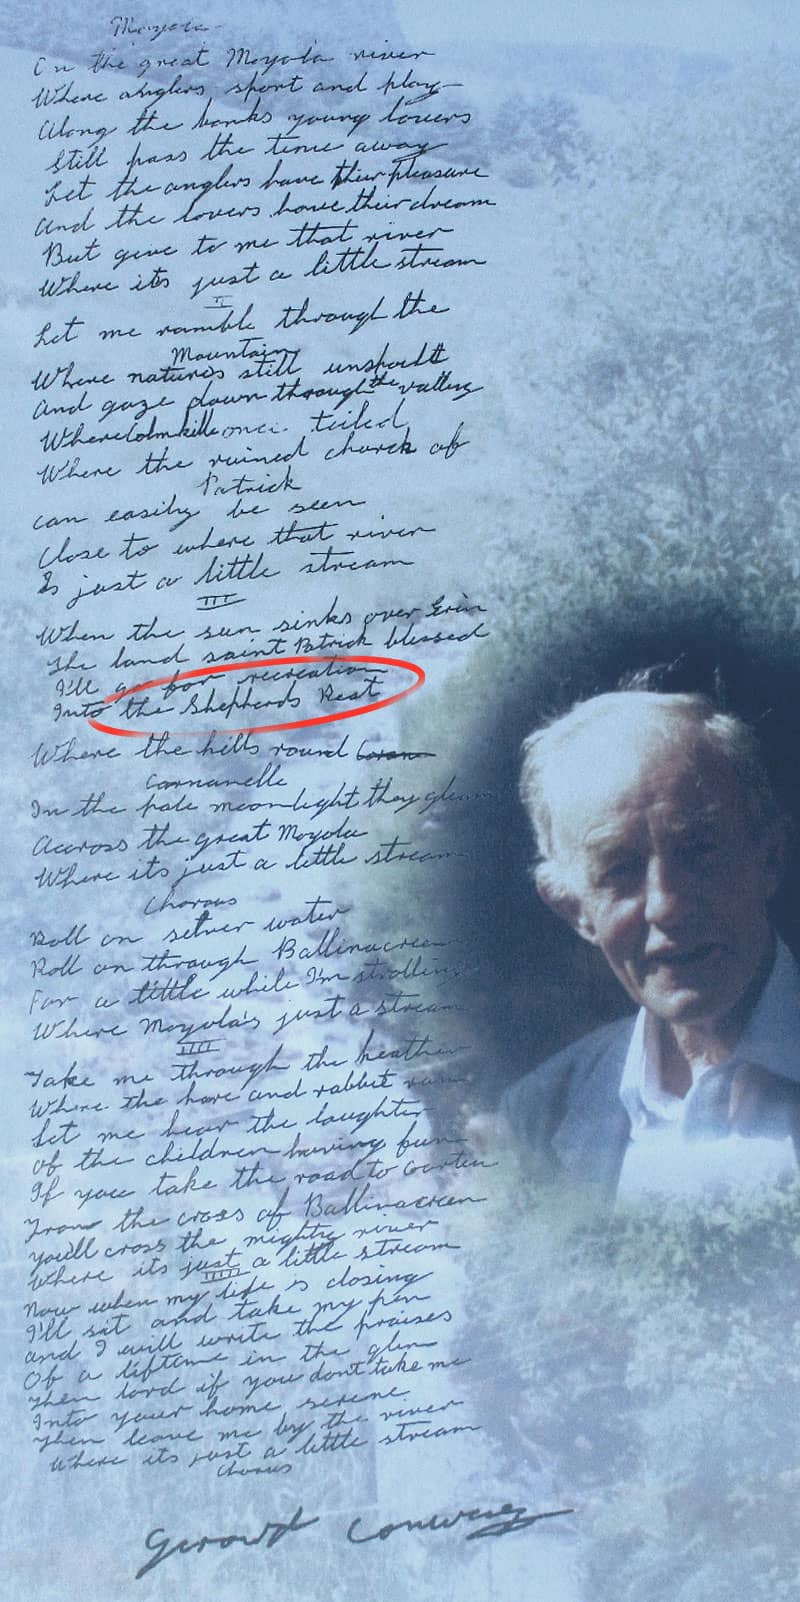 Moyola
On the great Moyola river
Where anglers sport and play
Along the banks young lovers
Still pass the time away
Let the anglers have their pleasure
And the lovers have their dream
But give to me that river
Where its just a little stream
II
Let me ramble through the
Mountain
Where natures still unspoilt
And gaze down through the valley
Where Colmkille once toiled
Where the ruined church of
Patrick
can easily be seen
Close to where that river
Is just a little stream
III
When the sun sinks over Erin
The land saint Patrick blessed
I'll go for recreation
Into the Shepherds Rest
Where the hills round
Carnanelle
In the pale moonlight they gleam
Accross the great Moyola
Where its just a little stream
Chorous
Roll on silver water
Roll on through Ballinacreen
For a little while I'm strolling
Where Moyola's just a stream
IIII
Take me through the heather
Where the hare and rabbit run
Let me hear the laughter
of the children having fun
If you take the road to Gorten
From the cross of Ballinacreen
You'll cross the mighty river
Where its just a little stream
IIIII
Now when my life is closing
I'll sit and take my pen
and I will write the praises
Of a liftame in the glen
Then lord if you dont take me
Into your home serene
Then leave me by the river
Where its just a little stream
Chorus
Gerard Conway